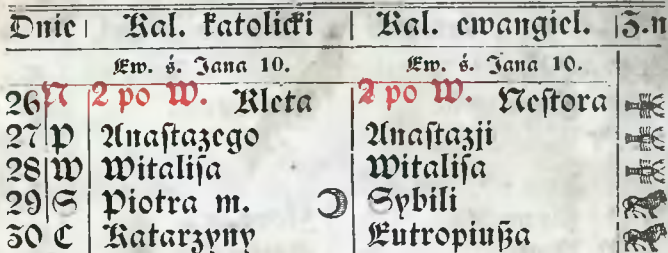 Dnie | Kal. katolicki | Kal. ewangiel. | Z.n
Ew. ś. Jana 10. Ew. ś. Jana 10.
26 N 2 po W. Kleta 2 po W. Nestora
27 P Anastazego Anastazji
28 W Witalisa Witalisa
29 S Piotra m. Sybili
30 C Katarzyny Eutropiusza